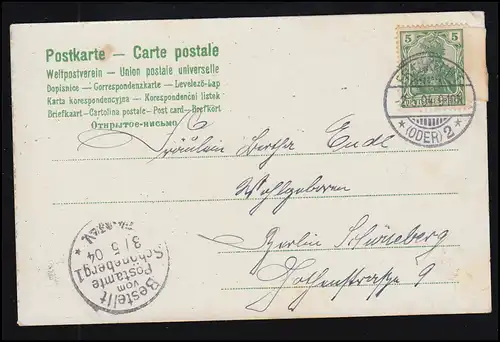 Postkarte — Carte postale
Weltpostverein — Union postale universelle
Dopisnice — Correspondenzkarte — Levelező-Lap
Karta korespondencyjna — Korespondenční lístek
Briefkaart—Cartolina postale—Post card—Brefkort
Открытое-письмо
5 5
* (ODER) 2 *
Fräulein Bertha Endl
Wohlgeboren
Berlin Schöneberg
Hohenstraße 9
Bestellt
vom
Postamte
Schöneberg 1
3/5 04